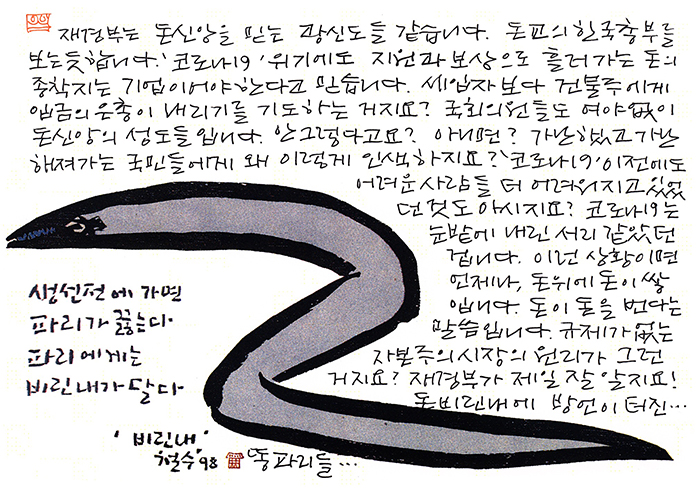 재경부는 돈신앙을 믿는 광신도들 같습니다. 돈교의 한국총부를
보는듯합니다. '코로나19' 위기에도 지원과 보상으로 흘러가는 돈의
종착지는 기업이어야한다고 믿습니다. 세입자보다 건물주에게
입금의 은총이 내리기를 기도하는 거지요? 국회의원들도 여야없이
돈신앙의 성도들입니다. 안그렇다고요? 아니면? 가난했고 가난
해져가는 국민들에게 왜 이렇게 인색하지요? '코로나19' 이전에도
어려운 사람들 더 어려워지고 있었
던 것도 아시지요? 코로나19는
눈밭에 내린 서리 같았던
겁니다. 이런 상황이면
언제나, 돈위에 돈이 쌓
입니다. 돈이 돈을 번다는
말씀입니다. 규제가 없는
자본주의 시장의 원리가 그런
거지요? 재경부가 제일 잘 알지요!
돈비린내에 방언이 터진...
똥파리들...
생선전에 가면
파리가 끓는다
파리에게는
비린내가 달다
'비린내'
철수 '98